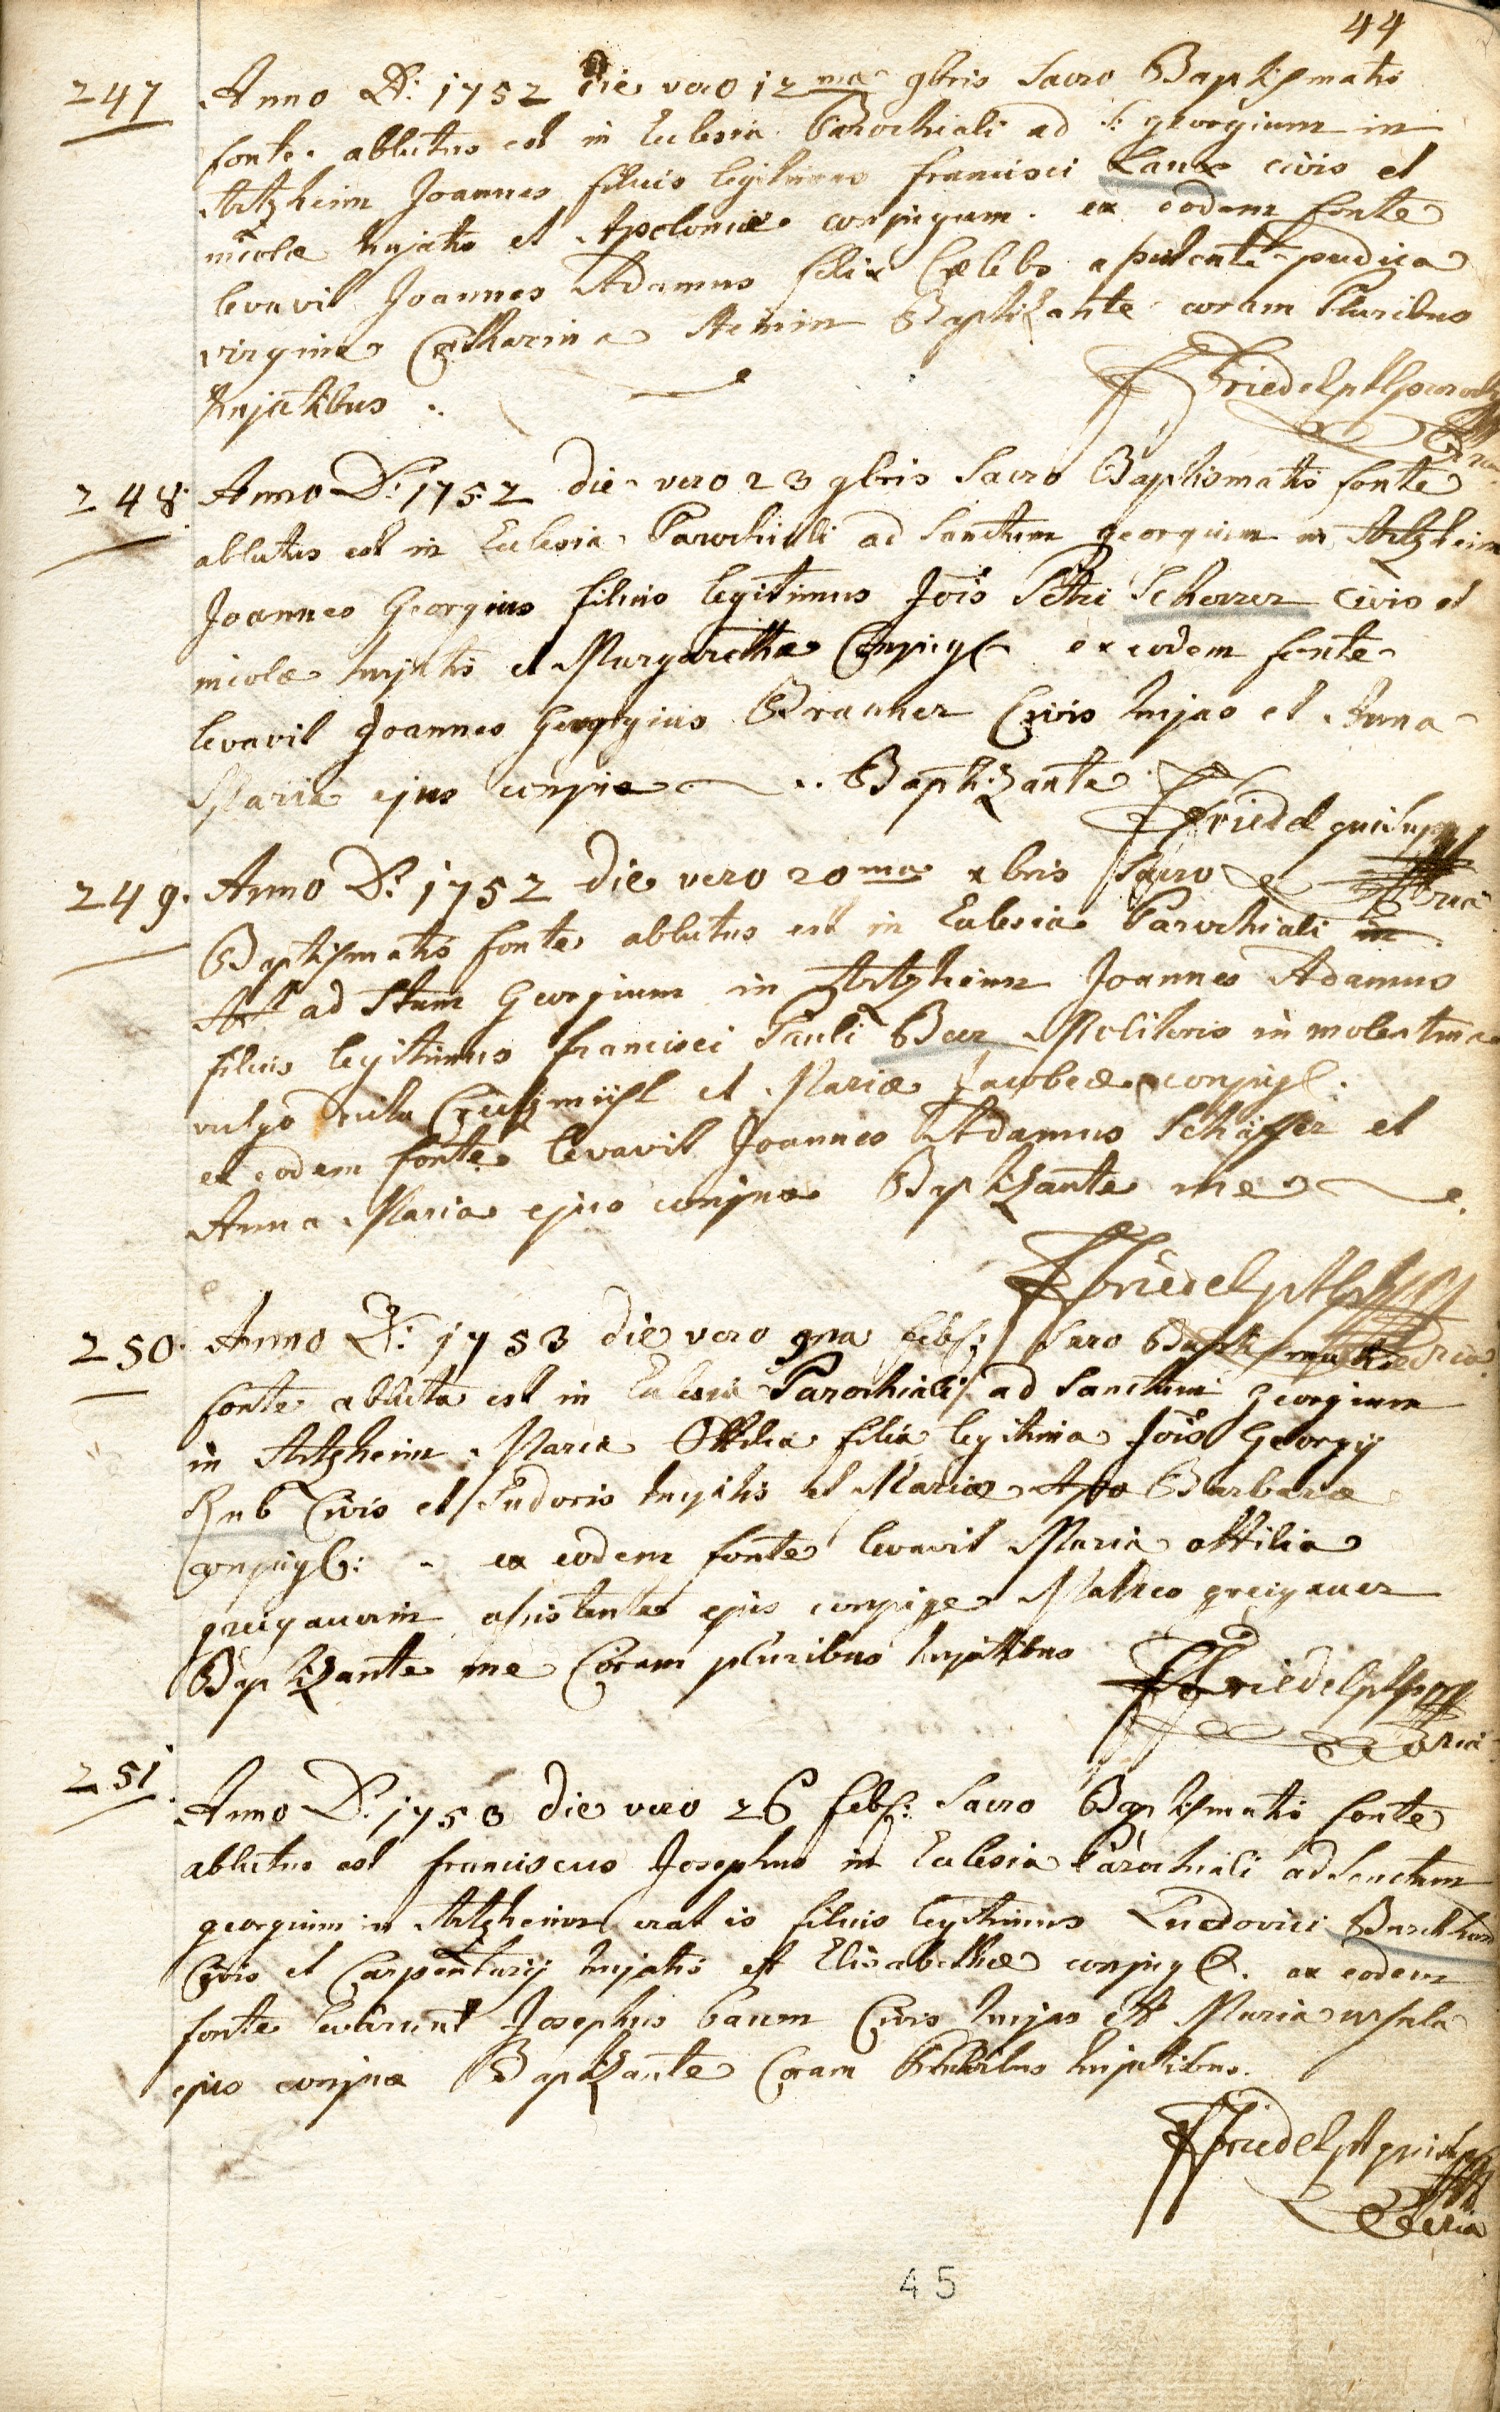 44
247 Anno D: 1752 die vero 12 ma 9bris Sacro Baptismatis
fonte ablutus est in Eclesia Parochiali ad S: georgium in
Artzheim Joannes filius legitimus francisci Lanx civis et
incolæ hujatis et Apoloniæ conjugum. ex eodem fonte
levavit Joannes Adamus felix Cælebs assistente pudica
virgine Catharina Baptizante coram Pluribus
hujatibus.
Friedel
248. Anno D: 1752 die vero 23 9bris Sacro Baptismatis fonte
ablutus est in Eclesia Parochiali ad Sanctum georgium in Artzheim
Joannes Georgius filius legitimus Jois Petri Scherrer Civis et
incolæ hujatis et Margarethæ Conjug ex eodem fonte
levavit Joannes Georgius Brauner Civis hujas et Anna
Maria ejus conjux Baptizante
Friedel
249. Anno D: 1752 die vero 20 ma xbris Sacro
Baptismatis fonte ablutus est in Eclesia Parochiali in
Art ad Stum Georgium in Artzheim Joannes Adamus
filius legitimus francisci Pauli Beer Molitoris in
vulgo dicta et Mariæ Jacobeæ conjug.
ex eodem fonte levavit Joannes Adamus Schäffer et
Anna Maria ejus conjux Baptizante me
Friedel
250. Anno D: 1753 die vero 9na feb: Sacro Baptismatis
fonte abluta est in Eclesia Parochiali ad Sanctum Georgium
in Artzheim Maria Ottilia filia legitima Jois Georgij
Rub Civis et Sudoris hujatis et Mariæ Apo Barbaræ
conjug: ex eodem fonte levavit Maria ottilia
greigauerin assistente ejus conjuge Matheo greigauer
Baptizante me Coram pluribus hujatibus
Friedel
251. Anno D: 1753 die vero 26 feb: Sacro Baptismatis fonte
ablutus est franciscus Josephus in Eclesia Parochiali ad Sanctum
georgium in Artzheim erat is filius legitimus Ludovici
Civis et Carpentarij hujatis et Elisabethæ conjug. ex eodem
fonte levarunt Josephus baum Civis hujas et Maria ursula
ejus conjux Baptizante Coram Pluribus hujatibus.
Friedel
45